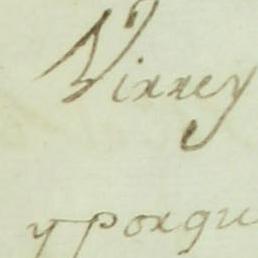 Virrey
y porqu